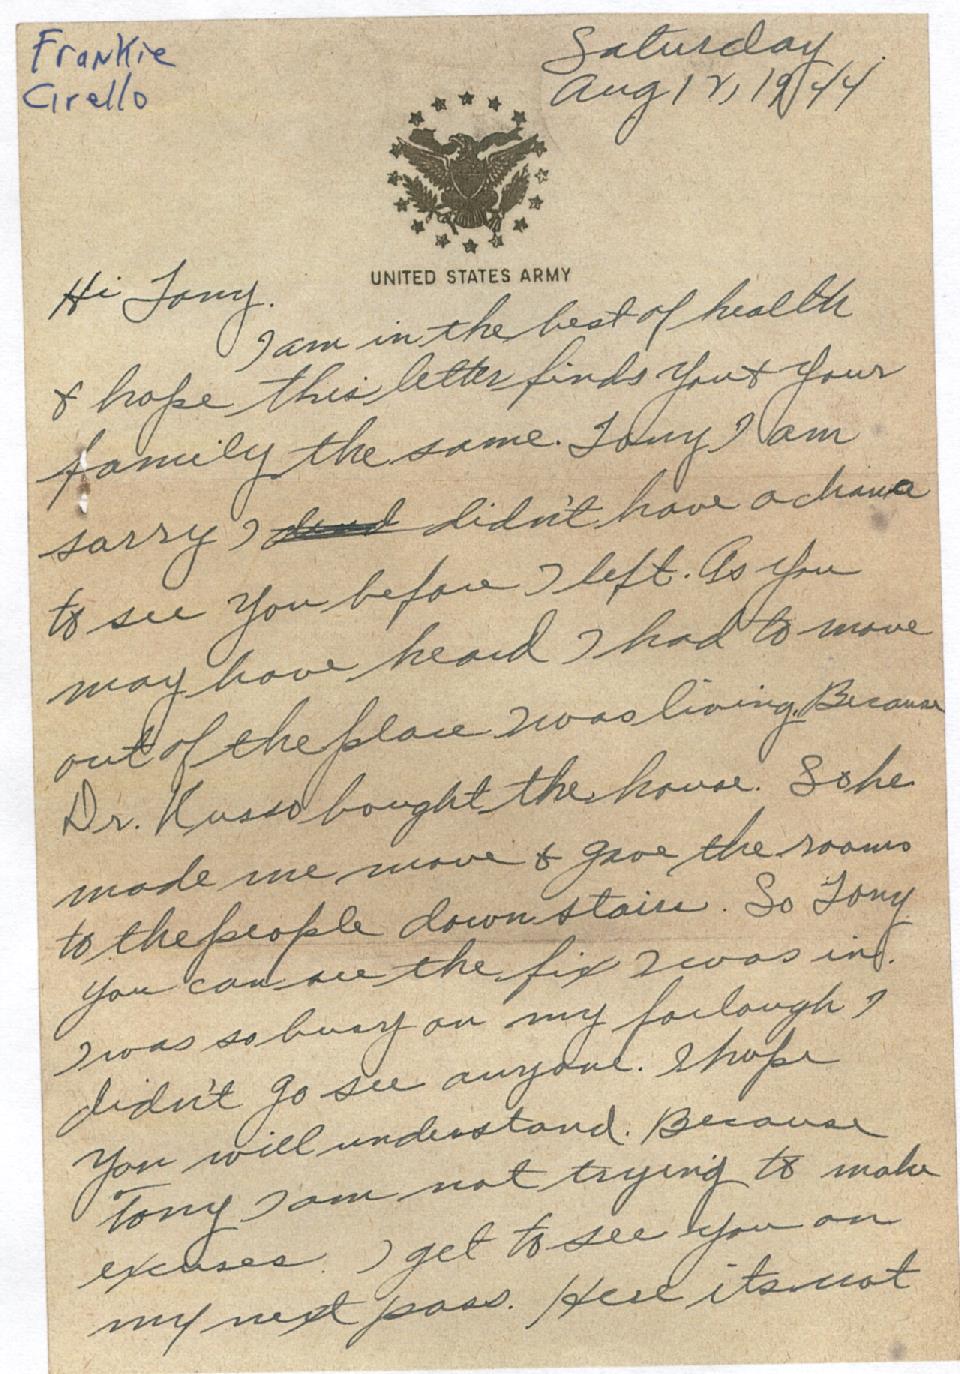 Frankie
Cirello
Saturday
Aug 12, 1944
UNITED STATES ARMY
Hi Tony.
I am in the best of health
& hope this letter finds you & your
family the same. Tony I am
sorry I didn't have a chance
to see you before I left. As you
may have heard I had to move
out of the place I was living. Because
Dr. Russo bought the house. So he
made me move & gave the rooms
to the people down stairs. So Tony
you can see the fix I was in.
I was so busy on my forlough I
didn't go see anyone. I hope
you will understand. Because
Tony I am not trying to make
excuses. I get to see you on
my next pass. Here its not